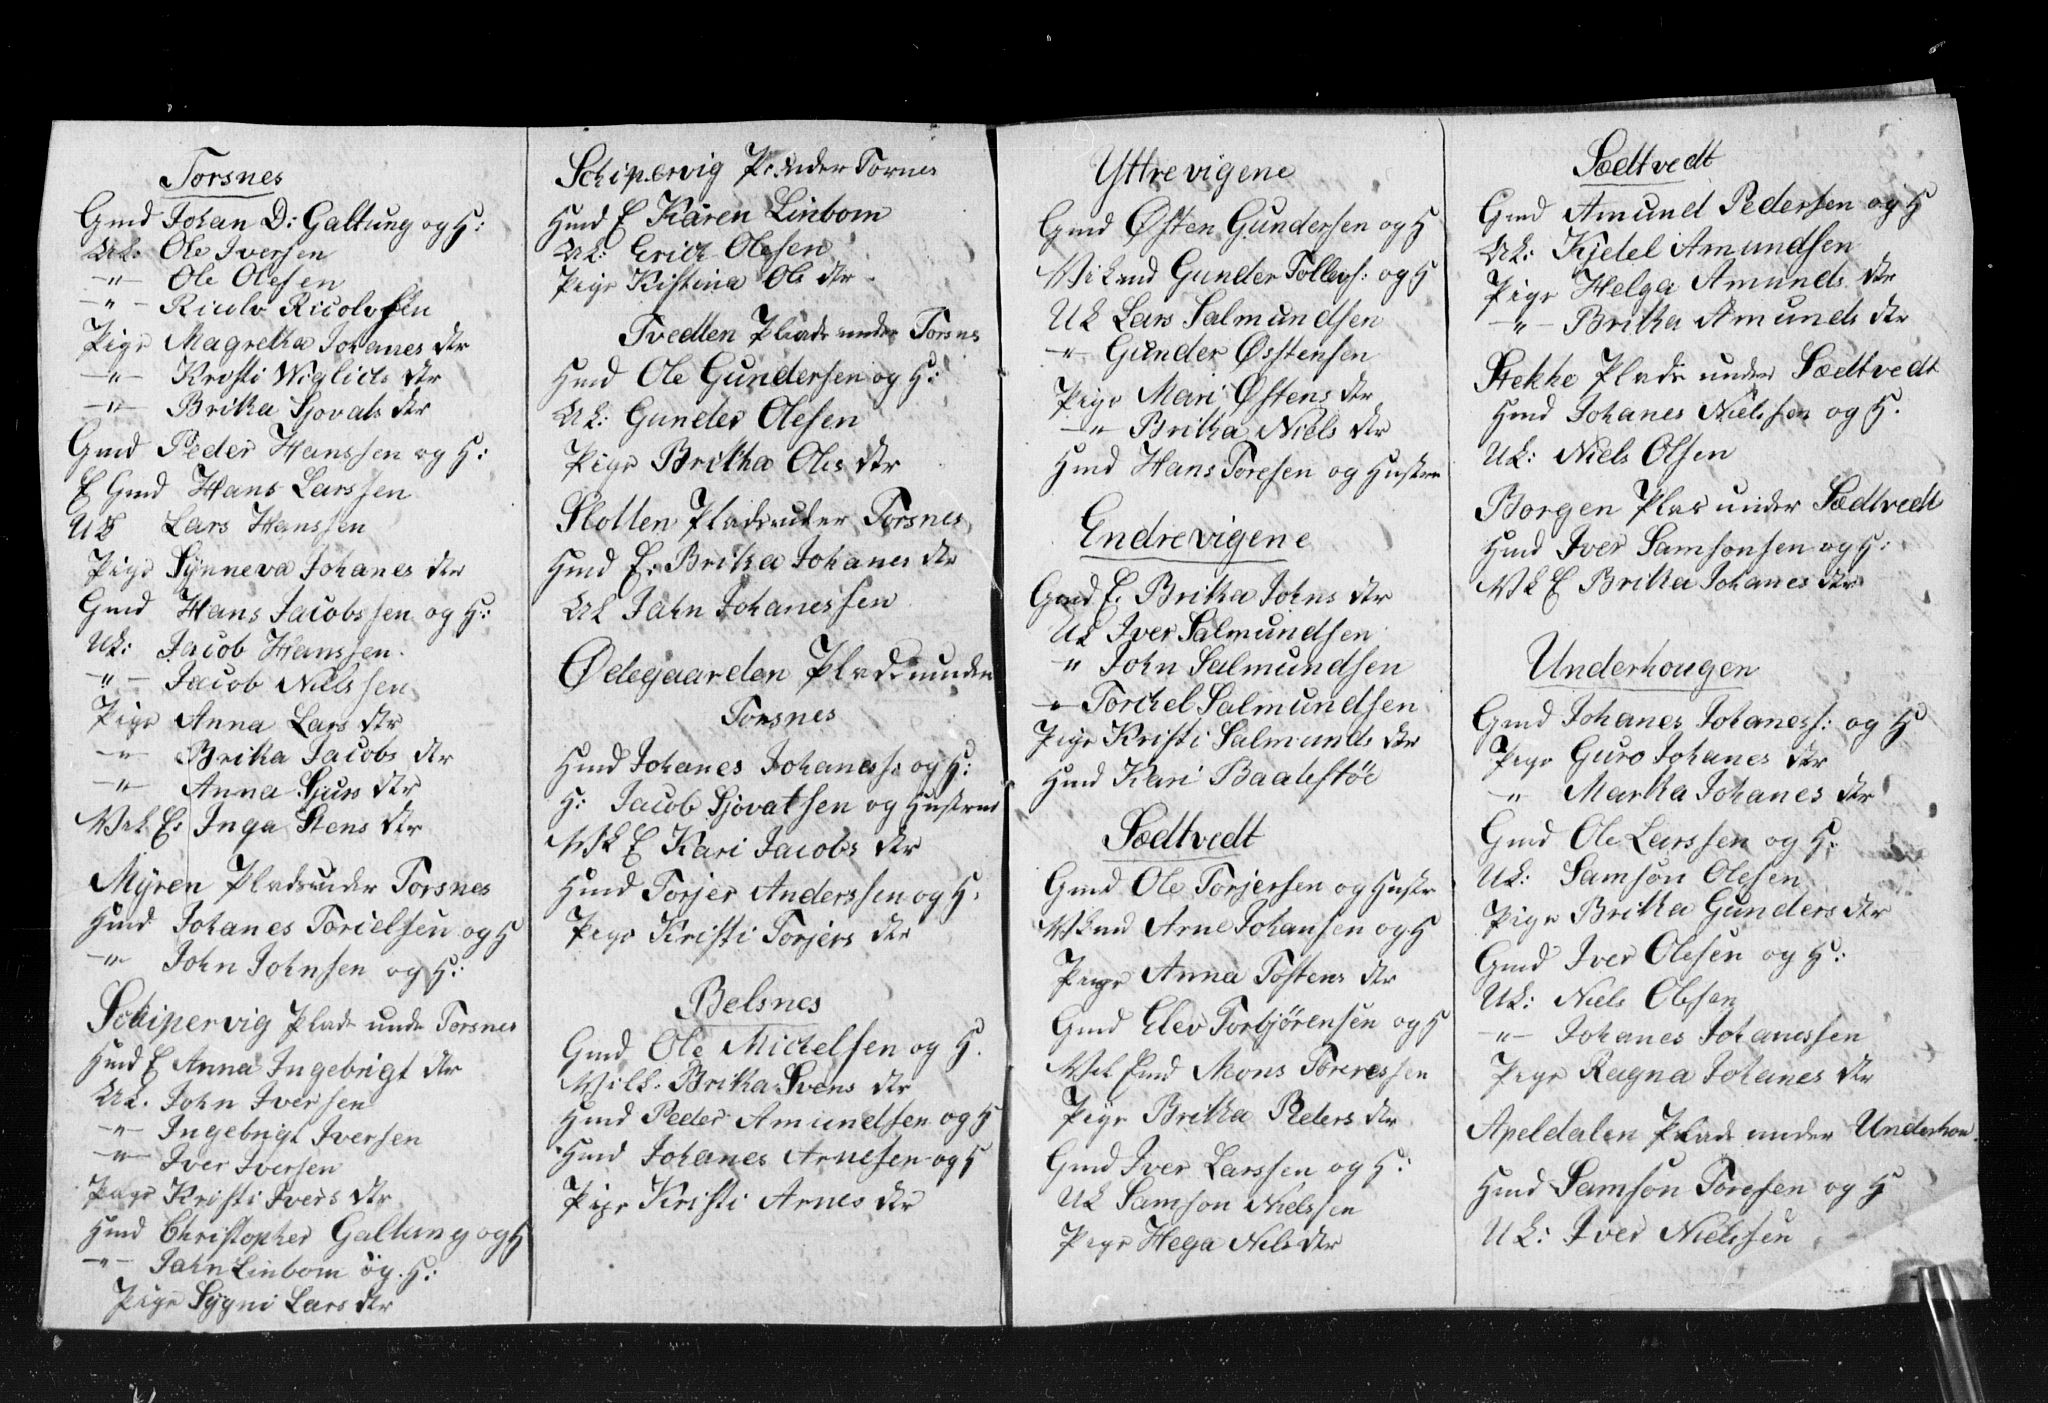 Torsnes
Gmd Johan D: Galtung og H:
UK. Ole Iversen
-"- Ole Olesen
-"- Ricolv Ricolvsen
Pige Magretha Johanes dtr
-"- Kristi Wiglicks dtr
-"- Britha Sjovats dtr
Gmd Peder Hanssen og H:
E Gmd Hans Larssen
UK Lars Hanssen
Pige Synneva Johanes dtr
Gmd Hans Jacobssen og H:
UK: Jacob Hanssen.
-"- Jacob Nielssen
Pige Anna Lars dtr
-"- Britha Jacobs dtr
-"- Anna Sjurs dtr
E: Inga Stens dtr
Myren Pladsunder Torsnes
Hmd Johanes Torielsen og H
-"- John Johnsen og H:
Schipervig Plads unde Torsnes
Hmd E Anna Ingebrigt dtr
UK. John Iversen
-"- Ingebrigt Iversen
-"- Iver Iversen
Pige Kristi Ivers dtr
Hmd Christopher Galtung og H
-"- Jahn Linbom og H:
Pige Sygni Lars dtr
Schipervig Pl under Tornes
Hmd E Karen Linbom
UK: Erich Olesen
Pige Kistina Ols dtr
Tvedten Plads under Torsnes
Hmd Ole Gundersen og H:
UK: Gunder Olesen
Pige Britha Oles dtr
Slotten Pladsunder Torsnes
Hmd E. Britha Johanes dtr
UK Jahn Johanessen
Ødegaarden Pladsunder
Torsnes
Hmd Johanes Johaness: og H:
H: Jacob Sjovatsen og Hustrue
E Kari Jacobs dtr
Hmd Torjer Anderssen og H.
Pige Kristi Torjers dtr
Belsnes
Gmd Ole Michelsen og H.
Britha Svens dtr
Hmd Peder Amundsen og H
Hmd Johanes Arnesen og H
Pige Kristi Arnes dtr
Yttrevigene
Gmd Østen Gundersen og H
Gunder Tollevs: og H
UK Lars Salmundsen
-"- Gunder Øsstensen
Pige Mari Østens dtr
-"- Britha Niels dtr
Hmd Hans Toresen og Hustrue
Endrevigene
Gmd E. Britha Johns dtr
UK Iver Salmundsen
" John Salmundsen
-"- Torchel Salmundsen
Pige Kristi Salmunds dtr
Hmd Kari Baalstøe
Sædtvedt
Gmd Ole Torjersen og Hustr
Arne Johansen og H
Pige Anna Tostens dtr
Gmd Elev Torbjørensen og H
Mons Toreresen
Pige Britha Peders dtr
Gmd Iver Larssen og H:
UK Samson Nielssen
Pige Hega Nils dtr
Sædtvedt
Gmd Amund Pedersen og H
UK: Kjedel Amundsen
Pige Helga Amunds dtr
-"- Britha Amunds dtr
Stekke Plads under Sædtvedt
Hmd Johanes Nielssen og H.
UK: Niels Olsen
Borgen Plas under Sædtvedt
Hmd Iver Samsonsen og H:
E Britha Johanes dtr
Underhougen
Gmd Johanes Johaness: og H
Pige Guro Johanes dtr
" Martha Johanes dtr
Gmd Ole Larssen og H:
UK: Samson Olesen
Pige Britha Gunders dtr
Gmd Iver Olesen og H:
UK: Niels Olesen
-"- Johanes Johanessen
Pige Ragna Johanes dtr
Apeldalen Plads under Underhou
Hmd Samson Toresen og H
UK: Iver Nielssen